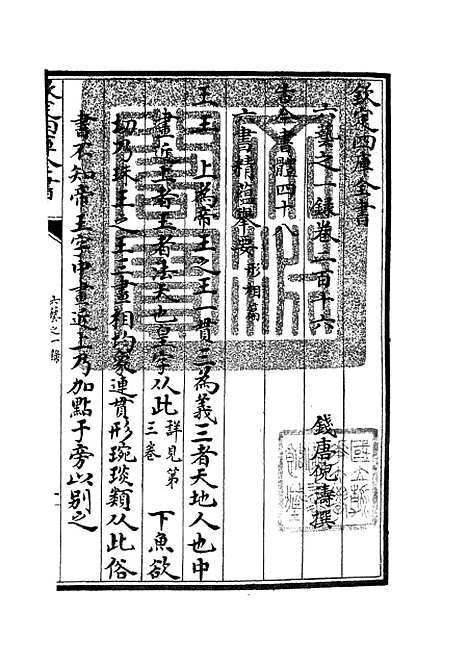 欽定四庫全書
六藝之一錄卷二百十六
錢唐倪濤撰
古今書體四十八
六書精蘊舉要形相篇
王王 上為帝王之王一貫三為義三者天地人也中
畫近上者王者法天也皇字从此詳見第三卷 下魚欲
切乃珠玉之玉三畫相均象連貫形琬琰類从此俗
書不知帝王字中畫近上乃加點于旁以别之
六藝之一錄